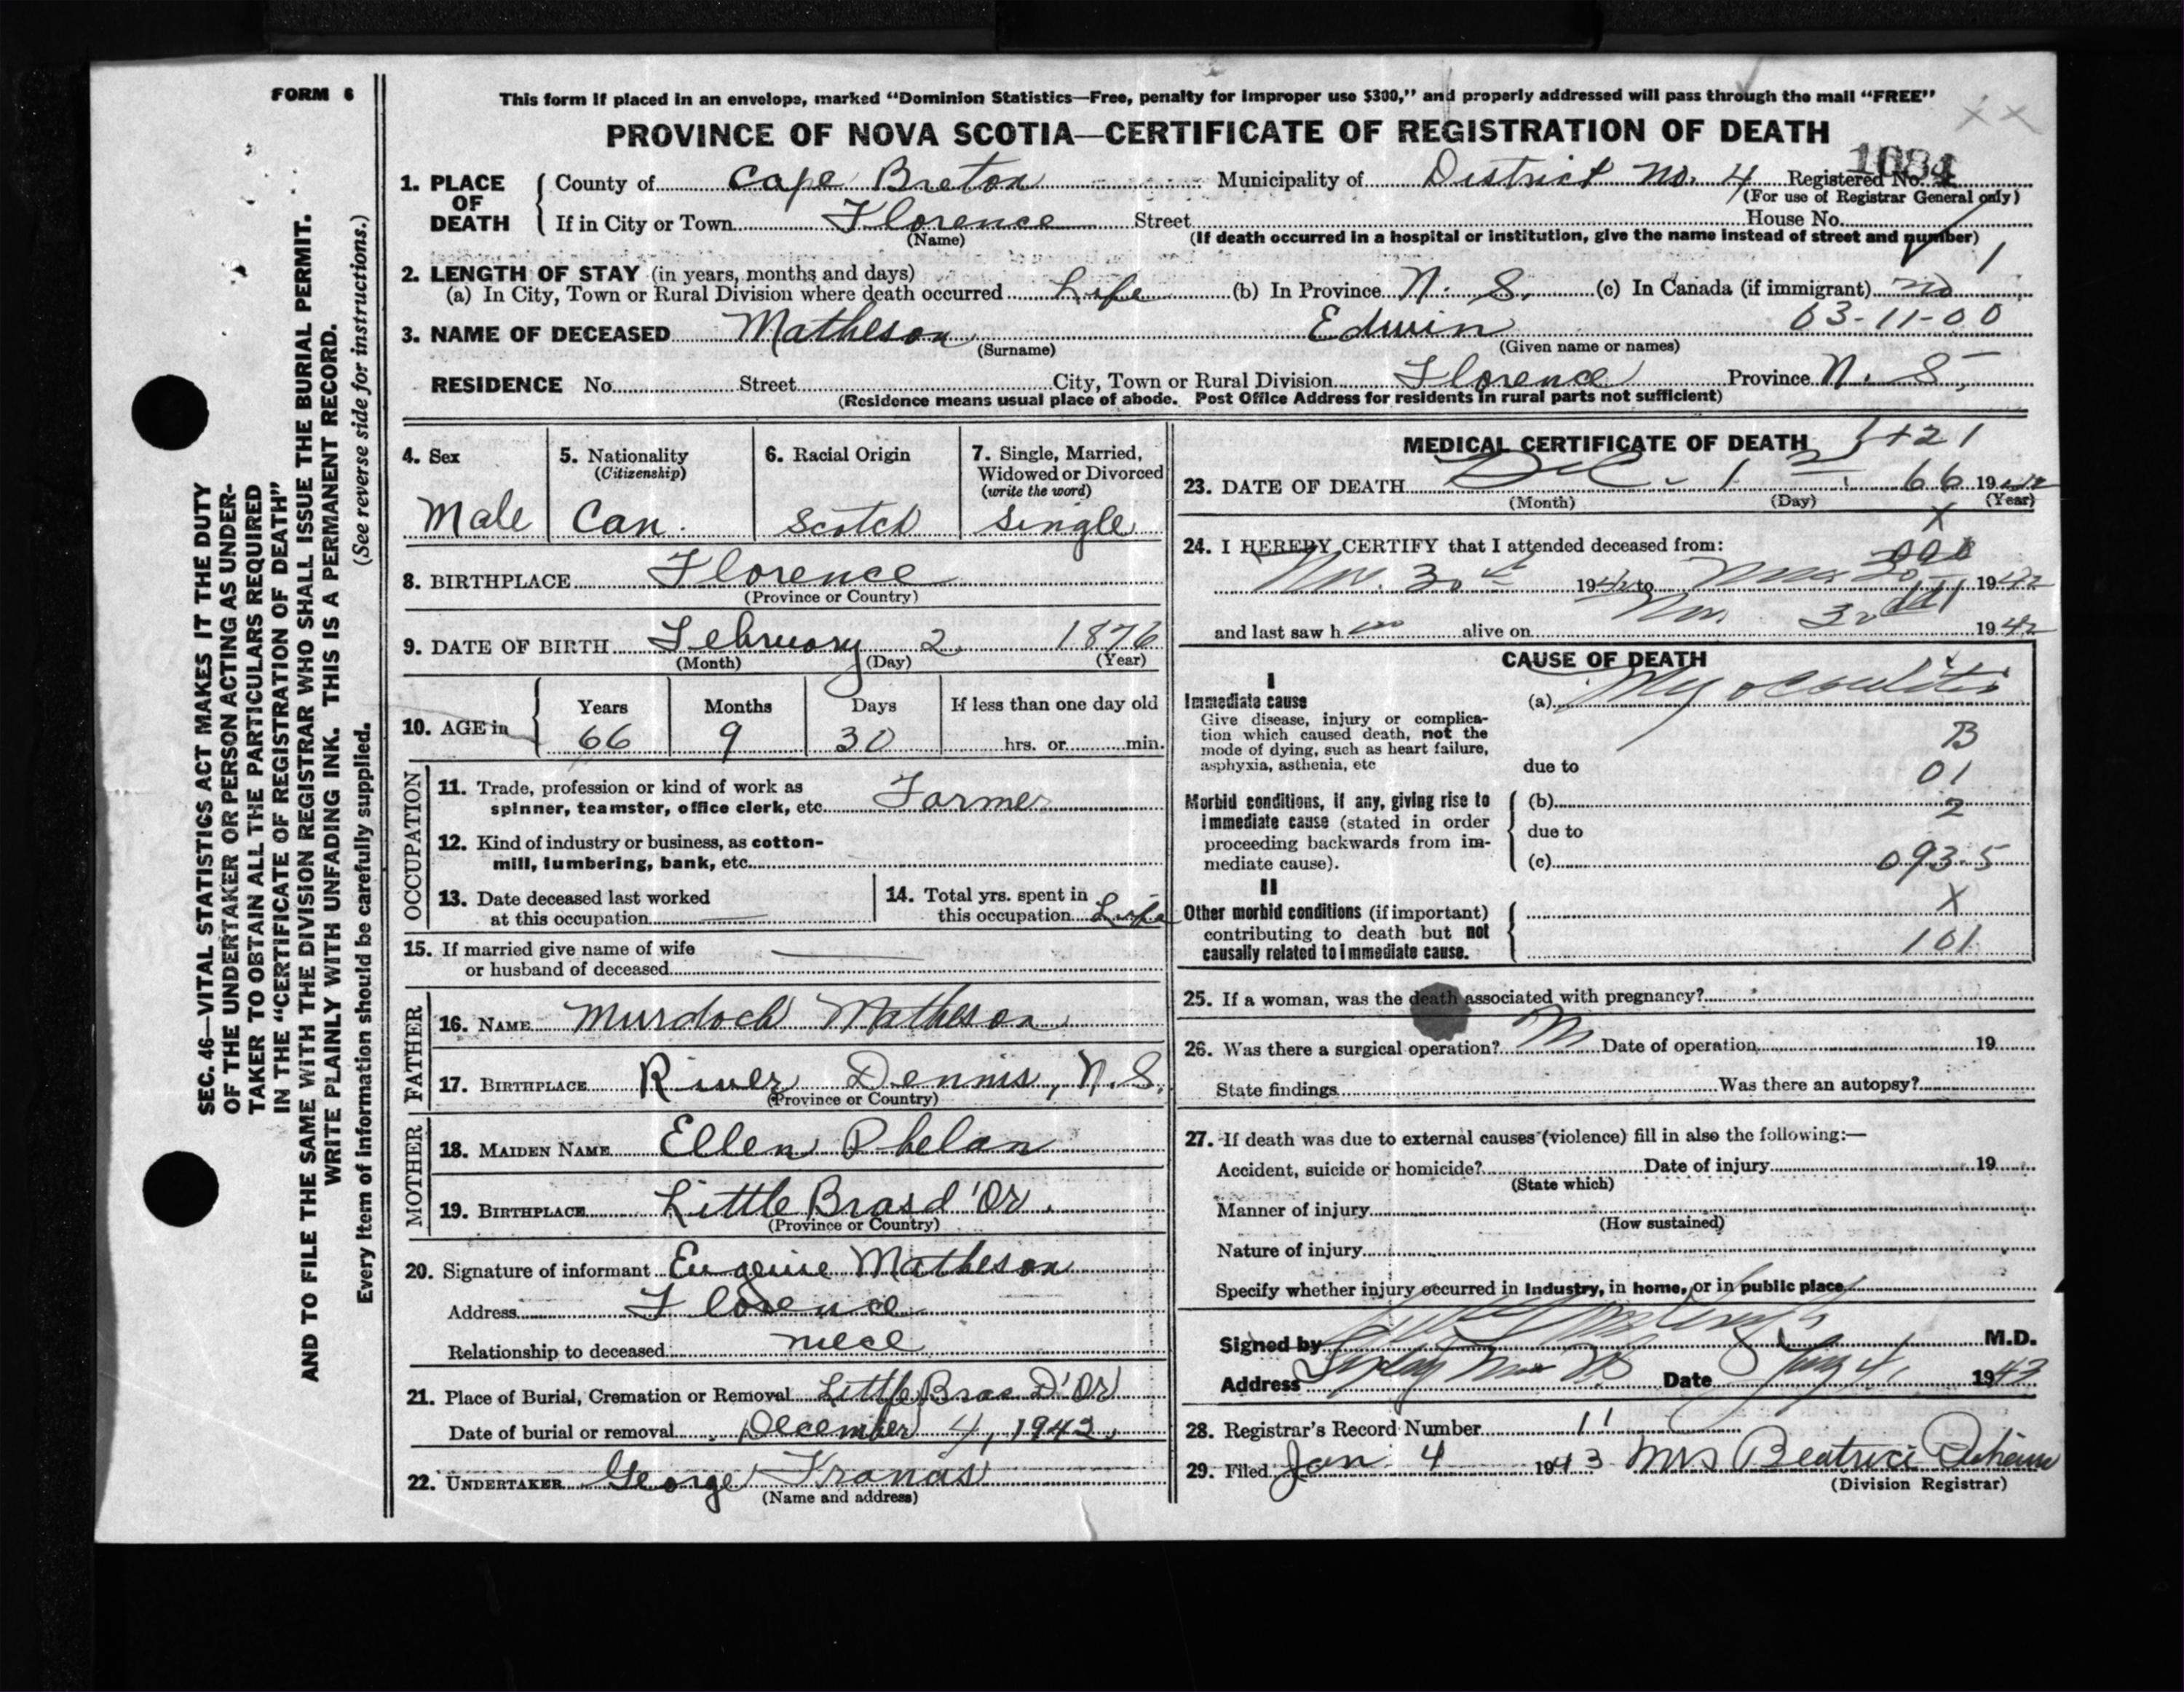 FORM 6
This form if placed in an envelope, marked "Dominion Statistics—Free, penalty for improper use $300," and properly addressed will pass through the mail "FREE"
PROVINCE OF NOVA SCOTIA—CERTIFICATE OF REGISTRATION OF DEATH
xx
1084
1. PLACE OF DEATH
County of Cape Breton Municipality of District No. 4 Registered No.
(For use of Registrar General only)
If in City or Town Florence Street House No.
(Name)
(If death occurred in a hospital or institution, give the name instead of street and number)
1
2. LENGTH OF STAY (in years, months and days)
(a) In City, Town or Rural Division where death occurred Life (b) In Province N. S. (c) In Canada (if immigrant) no
3. NAME OF DECEASED Matheson Edwin 03-11-00
(Surname) (Given name or names)
RESIDENCE No. Street City, Town or Rural Division Florence Province N. S.
(Residence means usual place of abode. Post Office Address for residents in rural parts not sufficient)
4. Sex
Male
5. Nationality
(Citizenship)
Can.
6. Racial Origin
Scotch
7. Single, Married,
Widowed or Divorced
(write the word)
Single
8. BIRTHPLACE Florence
(Province or Country)
9. DATE OF BIRTH February 2 1876
(Month) (Day) (Year)
10. AGE in
Years Months Days If less than one day old
66 9 30 hrs. or min.
OCCUPATION
11. Trade, profession or kind of work as
spinner, teamster, office clerk, etc. Farmer
12. Kind of industry or business, as cotton-
mill, lumbering, bank, etc.
13. Date deceased last worked
at this occupation
14. Total yrs. spent in
this occupation Life
15. If married give name of wife
or husband of deceased
FATHER
16. NAME Murdoch Matheson
17. BIRTHPLACE River Dennis, N.S.
(Province or Country)
MOTHER
18. MAIDEN NAME Ellen Phelan
19. BIRTHPLACE Little Bras d'Or.
(Province or Country)
20. Signature of informant Eugenie Matheson
Address Florence
Relationship to deceased niece
21. Place of Burial, Cremation or Removal Little Bras D'Or
Date of burial or removal December 4, 1942
22. UNDERTAKER George
(Name and address)
MEDICAL CERTIFICATE OF DEATH
23. DATE OF DEATH Dec. 1 66 1942
(Month) (Day) (Year)
x
24. I HEREBY CERTIFY that I attended deceased from:
Nov. 30th 1942 to Nov 30 1942
and last saw him alive on Nov. 30 1942
CAUSE OF DEATH
I
Immediate cause
Give disease, injury or complica-
tion which caused death, not the
mode of dying, such as heart failure,
asphyxia, asthenia, etc
(a) Myocarditis
B
due to
01
Morbid conditions, if any, giving rise to
immediate cause (stated in order
proceeding backwards from im-
mediate cause).
(b) 2
due to
(c) 093.5
II
Other morbid conditions (if important)
contributing to death but not
causally related to immediate cause.
X
101
25. If a woman, was the death associated with pregnancy?
26. Was there a surgical operation? Date of operation 19
State findings Was there an autopsy?
27. If death was due to external causes (violence) fill in also the following:—
Accident, suicide or homicide? Date of injury 19
(State which)
Manner of injury
(How sustained)
Nature of injury
Specify whether injury occurred in industry, in home, or in public place
Signed by M.D.
Address Date Jany 4, 1943
28. Registrar's Record Number 11
29. Filed Jan 4 1943 Mrs Beatrice
(Division Registrar)
SEC. 46—VITAL STATISTICS ACT MAKES IT THE DUTY
OF THE UNDERTAKER OR PERSON ACTING AS UNDER-
TAKER TO OBTAIN ALL THE PARTICULARS REQUIRED
IN THE "CERTIFICATE OF REGISTRATION OF DEATH"
AND TO FILE THE SAME WITH THE DIVISION REGISTRAR WHO SHALL ISSUE THE BURIAL PERMIT.
WRITE PLAINLY WITH UNFADING INK. THIS IS A PERMANENT RECORD.
Every item of information should be carefully supplied. (See reverse side for instructions.)